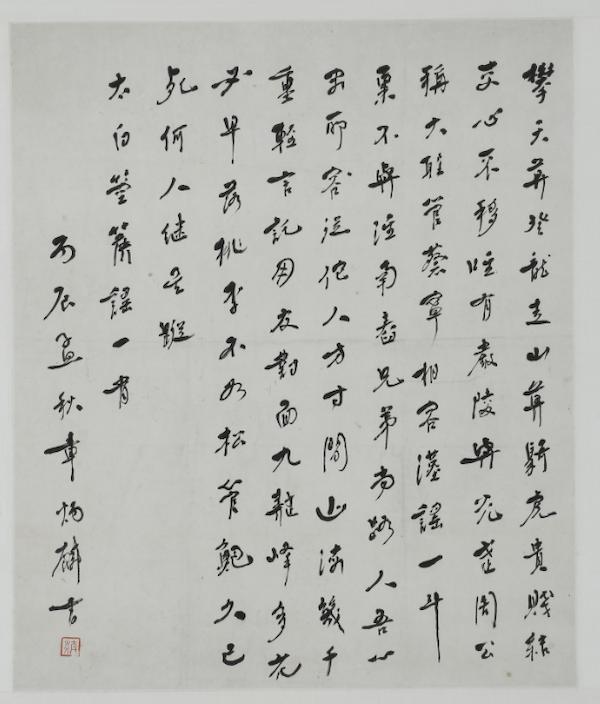 攀天莫登龍走山莫騎虎貴賤結
交心不移唯有嚴陵與光武周公
稱大聖管蔡寧相容漢謠一斗
粟不與淮南舂兄弟尚路人吾心
安所容從佗人方寸間山海幾千
重輕言託朋友對面九疑峰多花
必早落桃李不如松管鮑久已
死何人繼其蹤
太白箜篌謠一首
丙辰孟秋章炳麟書